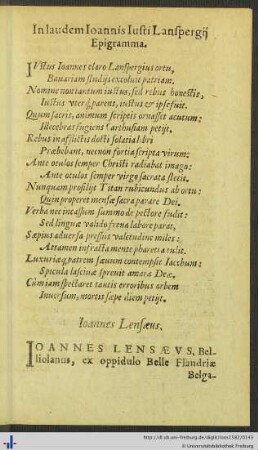 In laudem Ioannis Iusti Lanspergij
Epigramma.
IVstus Ioannes claro Lanspergius ortu,
Bauariam studijs excoluit patriam.
Nomine non tantum iustus, sed rebus honestis,
Iustus vterq; parens, iustus & ipse fuit.
Quum sacris, animum scriptis ornasset acutum:
Illecebras fugiens Carthusiam petijt.
Rebus in afflictis docti solatia libri
Præbebant, necnon fortia scripta virum:
Ante oculos semper Christi radiabat imago:
Ante oculos semper virgo sacrata stetit.
Nunquam prosilijt Titan rubicundus ab ortu:
Quin properet mensæ sacra parare Dei.
Verba nec incassum summo de pectore fudit:
Sed linguæ valido frena labore parat,
Sæpius aduersa pressus valetudine miles:
Attamen infracta mente pharetra tulit.
Luxuriæq; patrem sæuum contempsit Iacchum:
Spicula lasciuæ spreuit amara Deæ.
Cùm iam spectaret tantis erroribus orbem
Inuersum, mortis sæpe diem petijt.
Ioannes Lensæus.
IOANNES LENSÆVS, Bel-
liolanus, ex oppidulo Belle Flandriæ
Belga-
http://dl.ub.uni-freiburg.de/diglit/roos1582/0143
© Universitätsbibliothek Freiburg